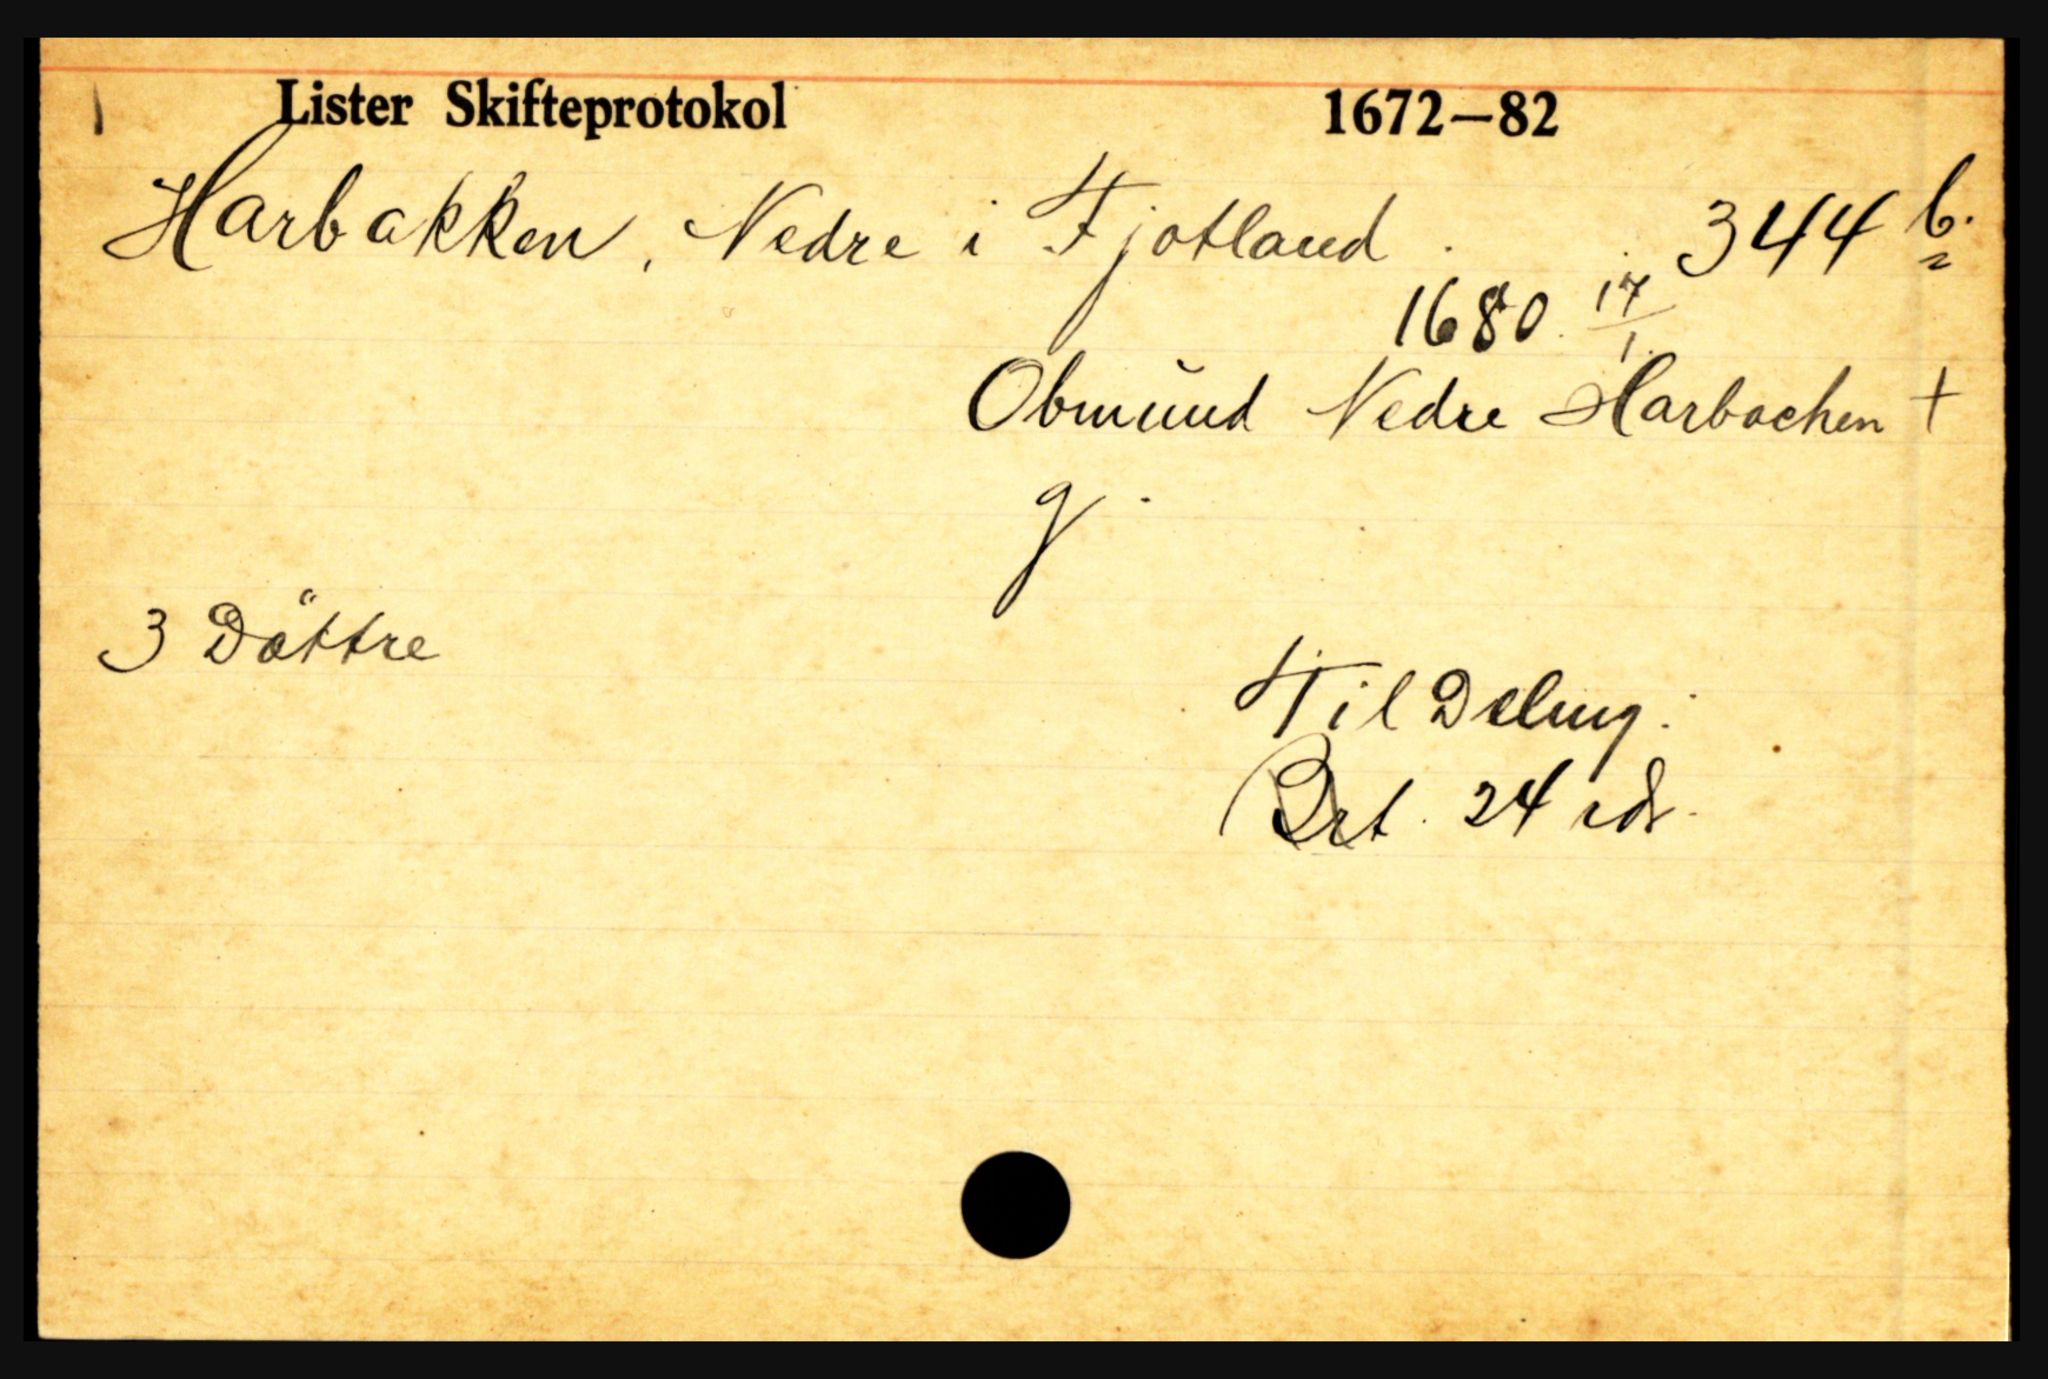 Lister Skifteprotokol 1672–82
Harbakken, Nedre i Fjotland. 344 b.
1680 17/1
Obmund Nedre Harbachen +
g.
3 Döttre
Til Deling:
Brt. 24 rdr.